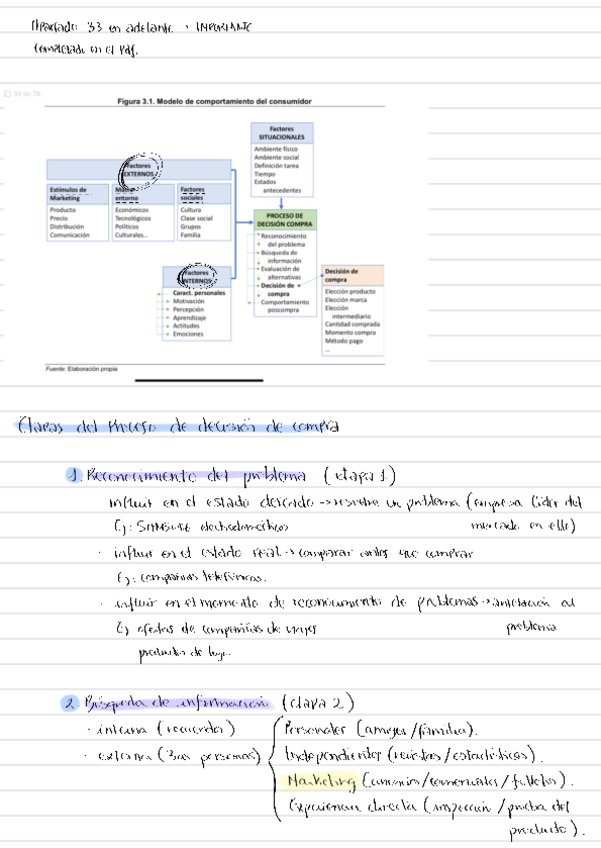 Apartado: 33 en adelante. → IMPORTANTE
Completado en el Pdf.
34 de 78
Figura 3.1. Modelo de comportamiento del consumidor
Factores
SITUACIONALES
Ambiente físico
Ambiente social
Definición tarea
Tiempo
Estados
antecedentes
Factores
EXTERNOS
Estímulos de
Marketing
Producto
Precio
Distribución
Comunicación
Macro
entorno
Económicos
Tecnológicos
Políticos
Culturales...
Factores
sociales
Cultura
Clase social
Grupos
Familia
PROCESO DE
DECISIÓN COMPRA
Reconocimiento
del problema
Búsqueda de
información
Evaluación de
alternativas
Decisión de
compra
Comportamiento
poscompra
Factores
INTERNOS
Caract. personales
Motivación
Percepción
Aprendizaje
Actitudes
Emociones
Decisión de
compra
Elección producto
Elección marca
Elección
intermediario
Cantidad comprada
Momento compra
Método pago
...
Fuente: Elaboración propia
Etapas del Proceso de decisión de compra
1. Reconocimiento del problema (etapa 1)
influir en el estado deseado → resolver un problema (empresa líder del
mercado en ello)
Ej: electrodomésticos
· influir en el estado real → comparar antes que comprar
Ej: compañías telefónicas.
· influir en el momento de reconocimiento de problemas → anticipación al
problema
Ej ofertas de compañías de viajes
productos de
2. Búsqueda de información (etapa 2)
· interna (recuerdo)
· externa (3as personas)
Personales (amigos/familia).
Independientes (revistas/estadísticas).
Marketing (anuncios/comerciales/folletos).
Experiencia directa (inspección/prueba del
producto).